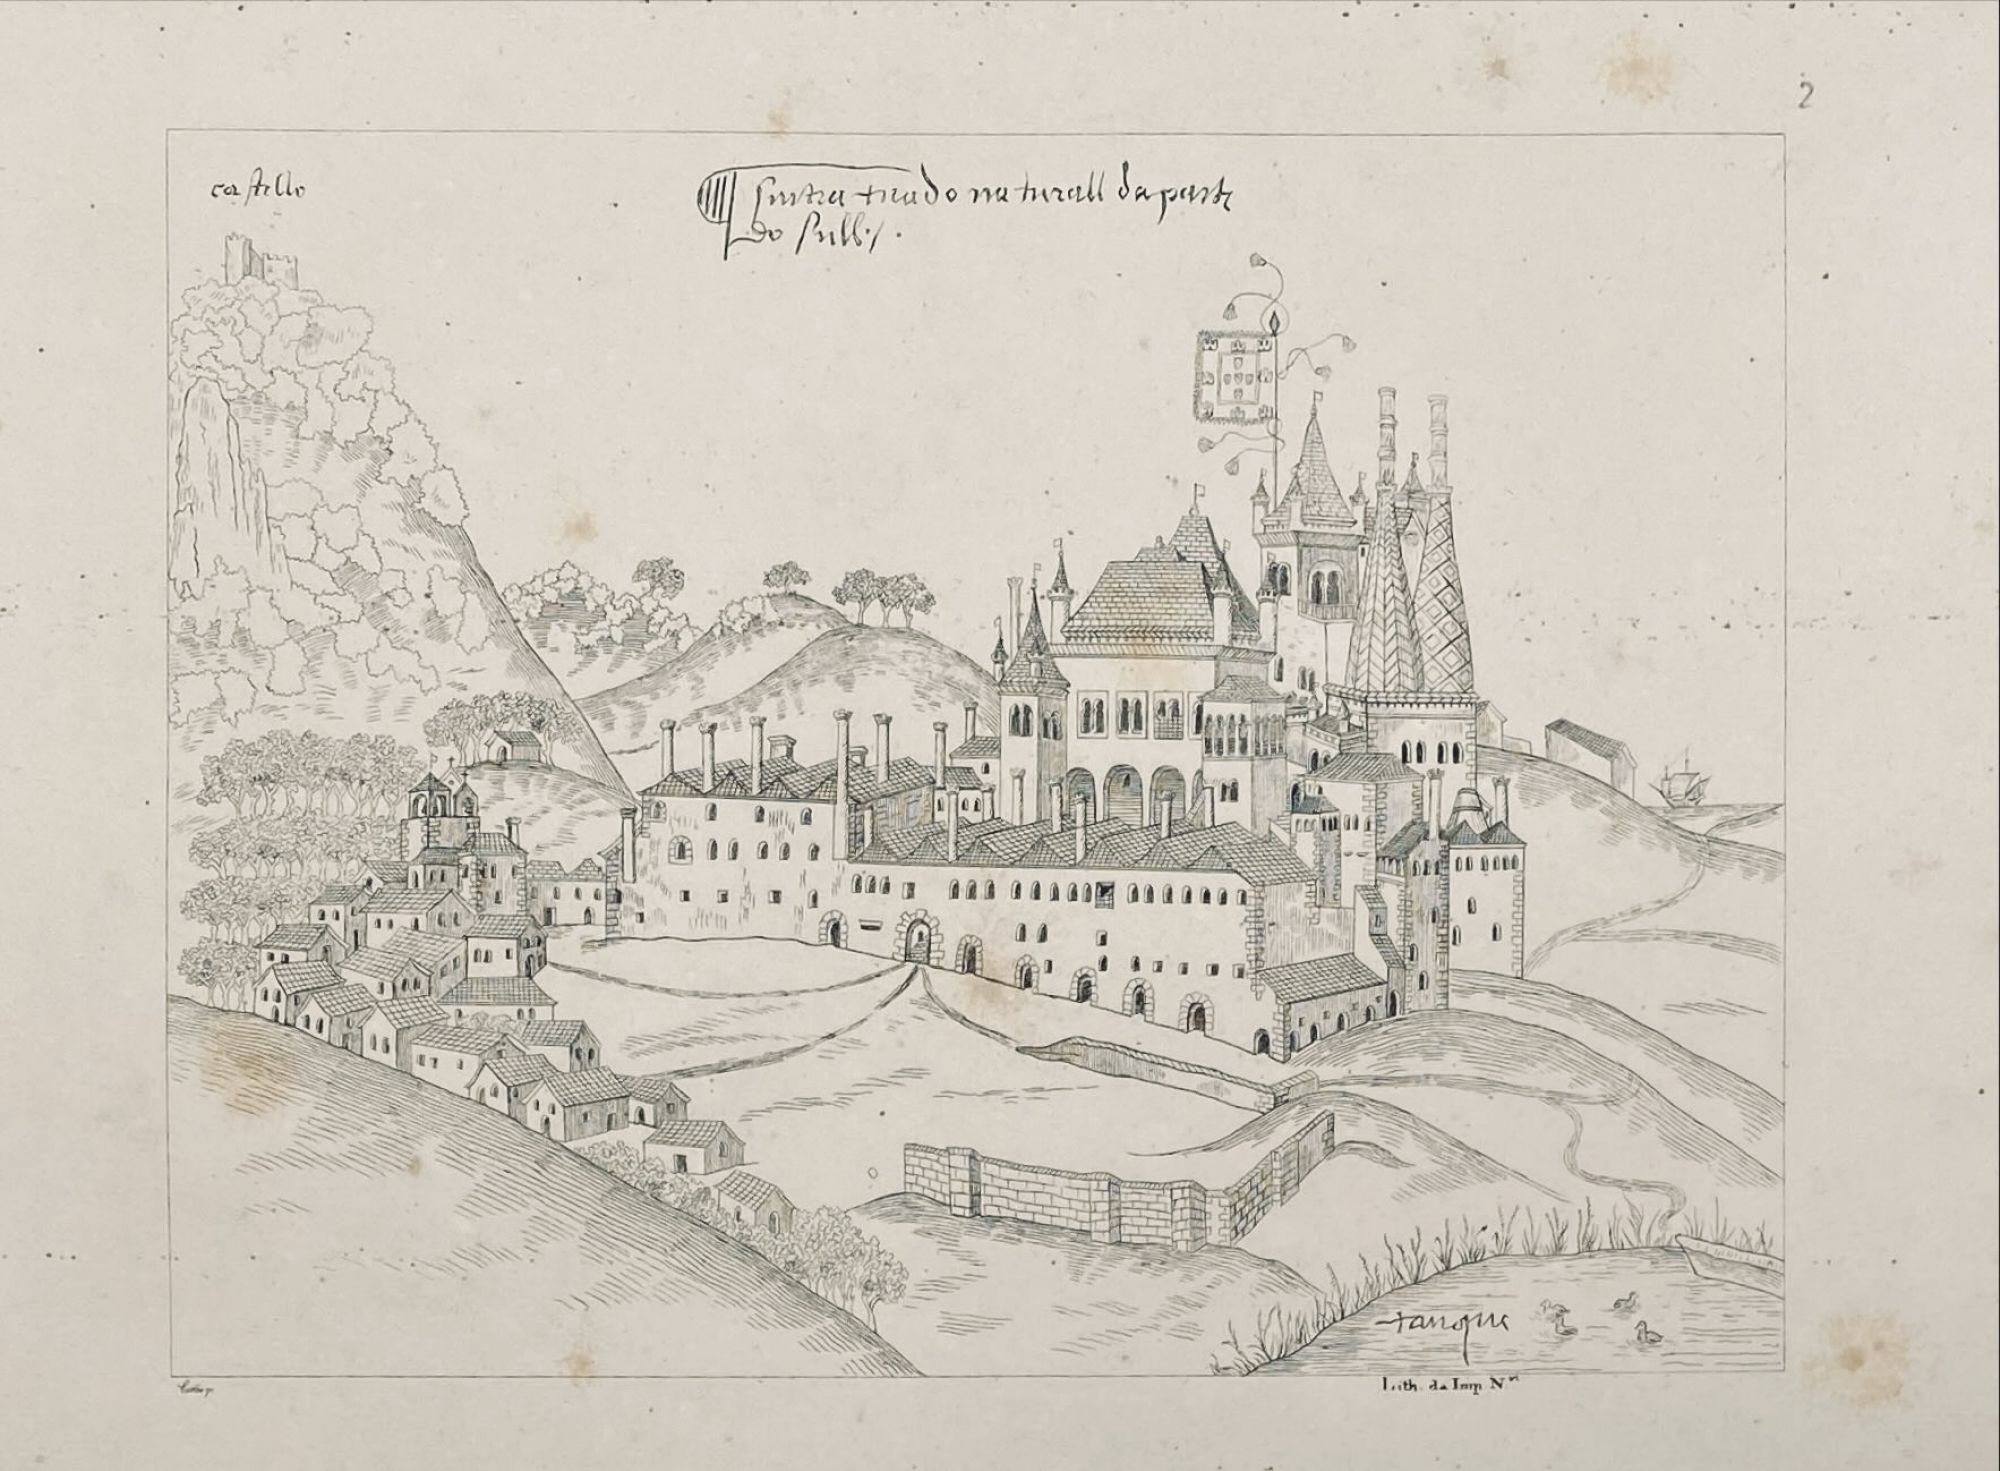 2
castillo
sintra tirado naturall da parte
do sull.
tanque
Lith. da Imp. Nal